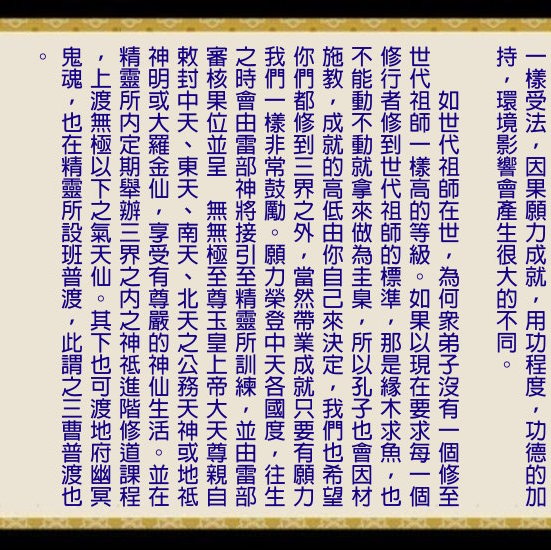 一樣受法，因果願力成就，用功程度，功德的加
持，環境影響會產生很大的不同。
如世代祖師在世，為何衆弟子沒有一個修至
世代祖師一樣高的等級。如果以現在要求每一個
修行者修到世代祖師的標準，那是緣木求魚，也
不能動不動就拿來做為圭臬，所以孔子也會因材
施教，成就的高低由你自己來決定，我們也希望
你們都修到三界之外，當然帶業成就只要有願力
我們一樣非常鼓勵。願力榮登中天各國度，往生
之時會由雷部神將接引至精靈所訓練，並由雷部
審核果位並呈　無無極至尊玉皇上帝大天尊親自
敕封中天、東天、南天、北天之公務天神或地祇
神明或大羅金仙，享受有尊嚴的神仙生活。並在
精靈所内定期舉辦三界之内之神祇進階修道課程
，上渡無極以下之氣天仙。其下也可渡地府幽冥
鬼魂，也在精靈所設班普渡，此謂之三曹普渡也
。